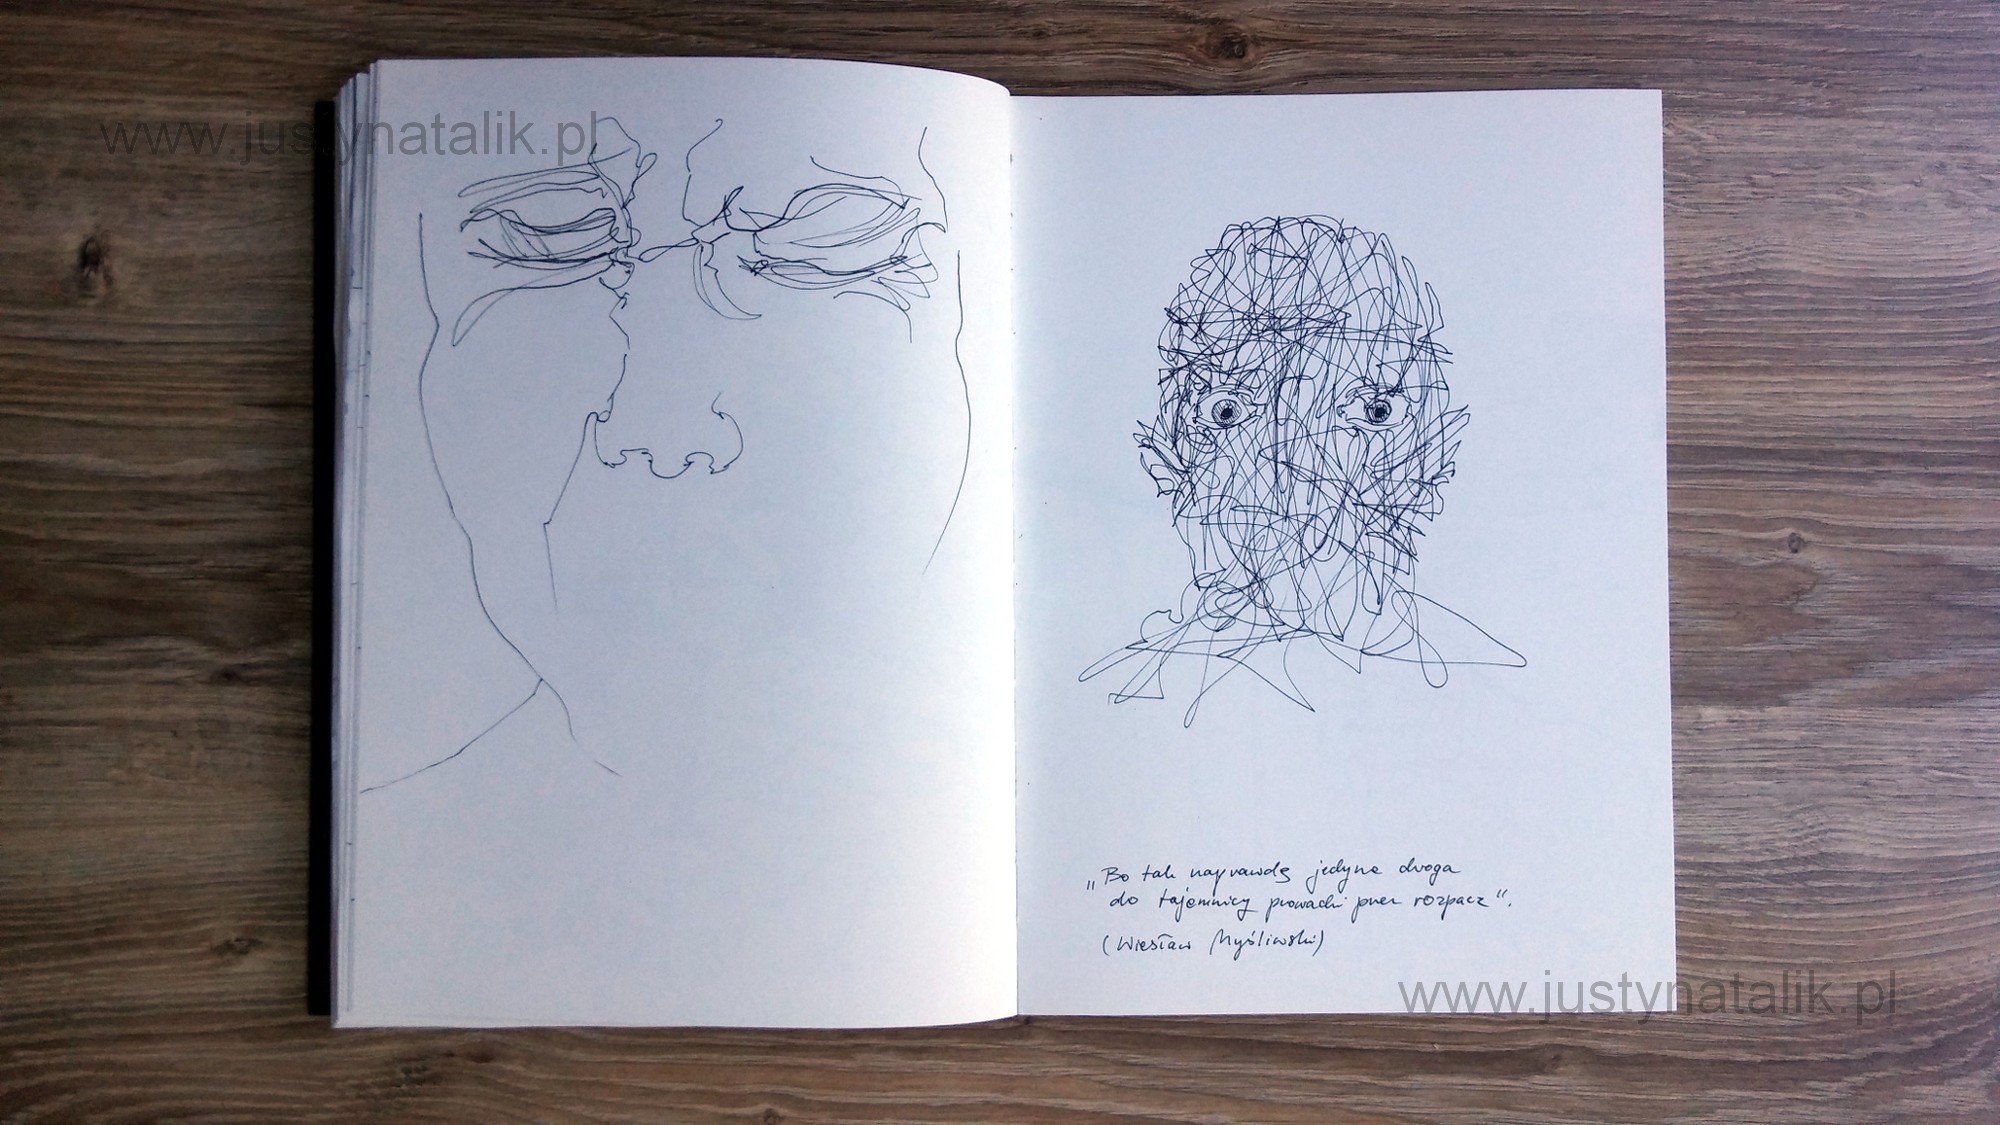 www.justynatalik.pl
„Bo tak naprawdę jedyna droga
do tajemnicy prowadzi przez rozpacz".
(Wiesław Myśliwski)
www.justynatalik.pl